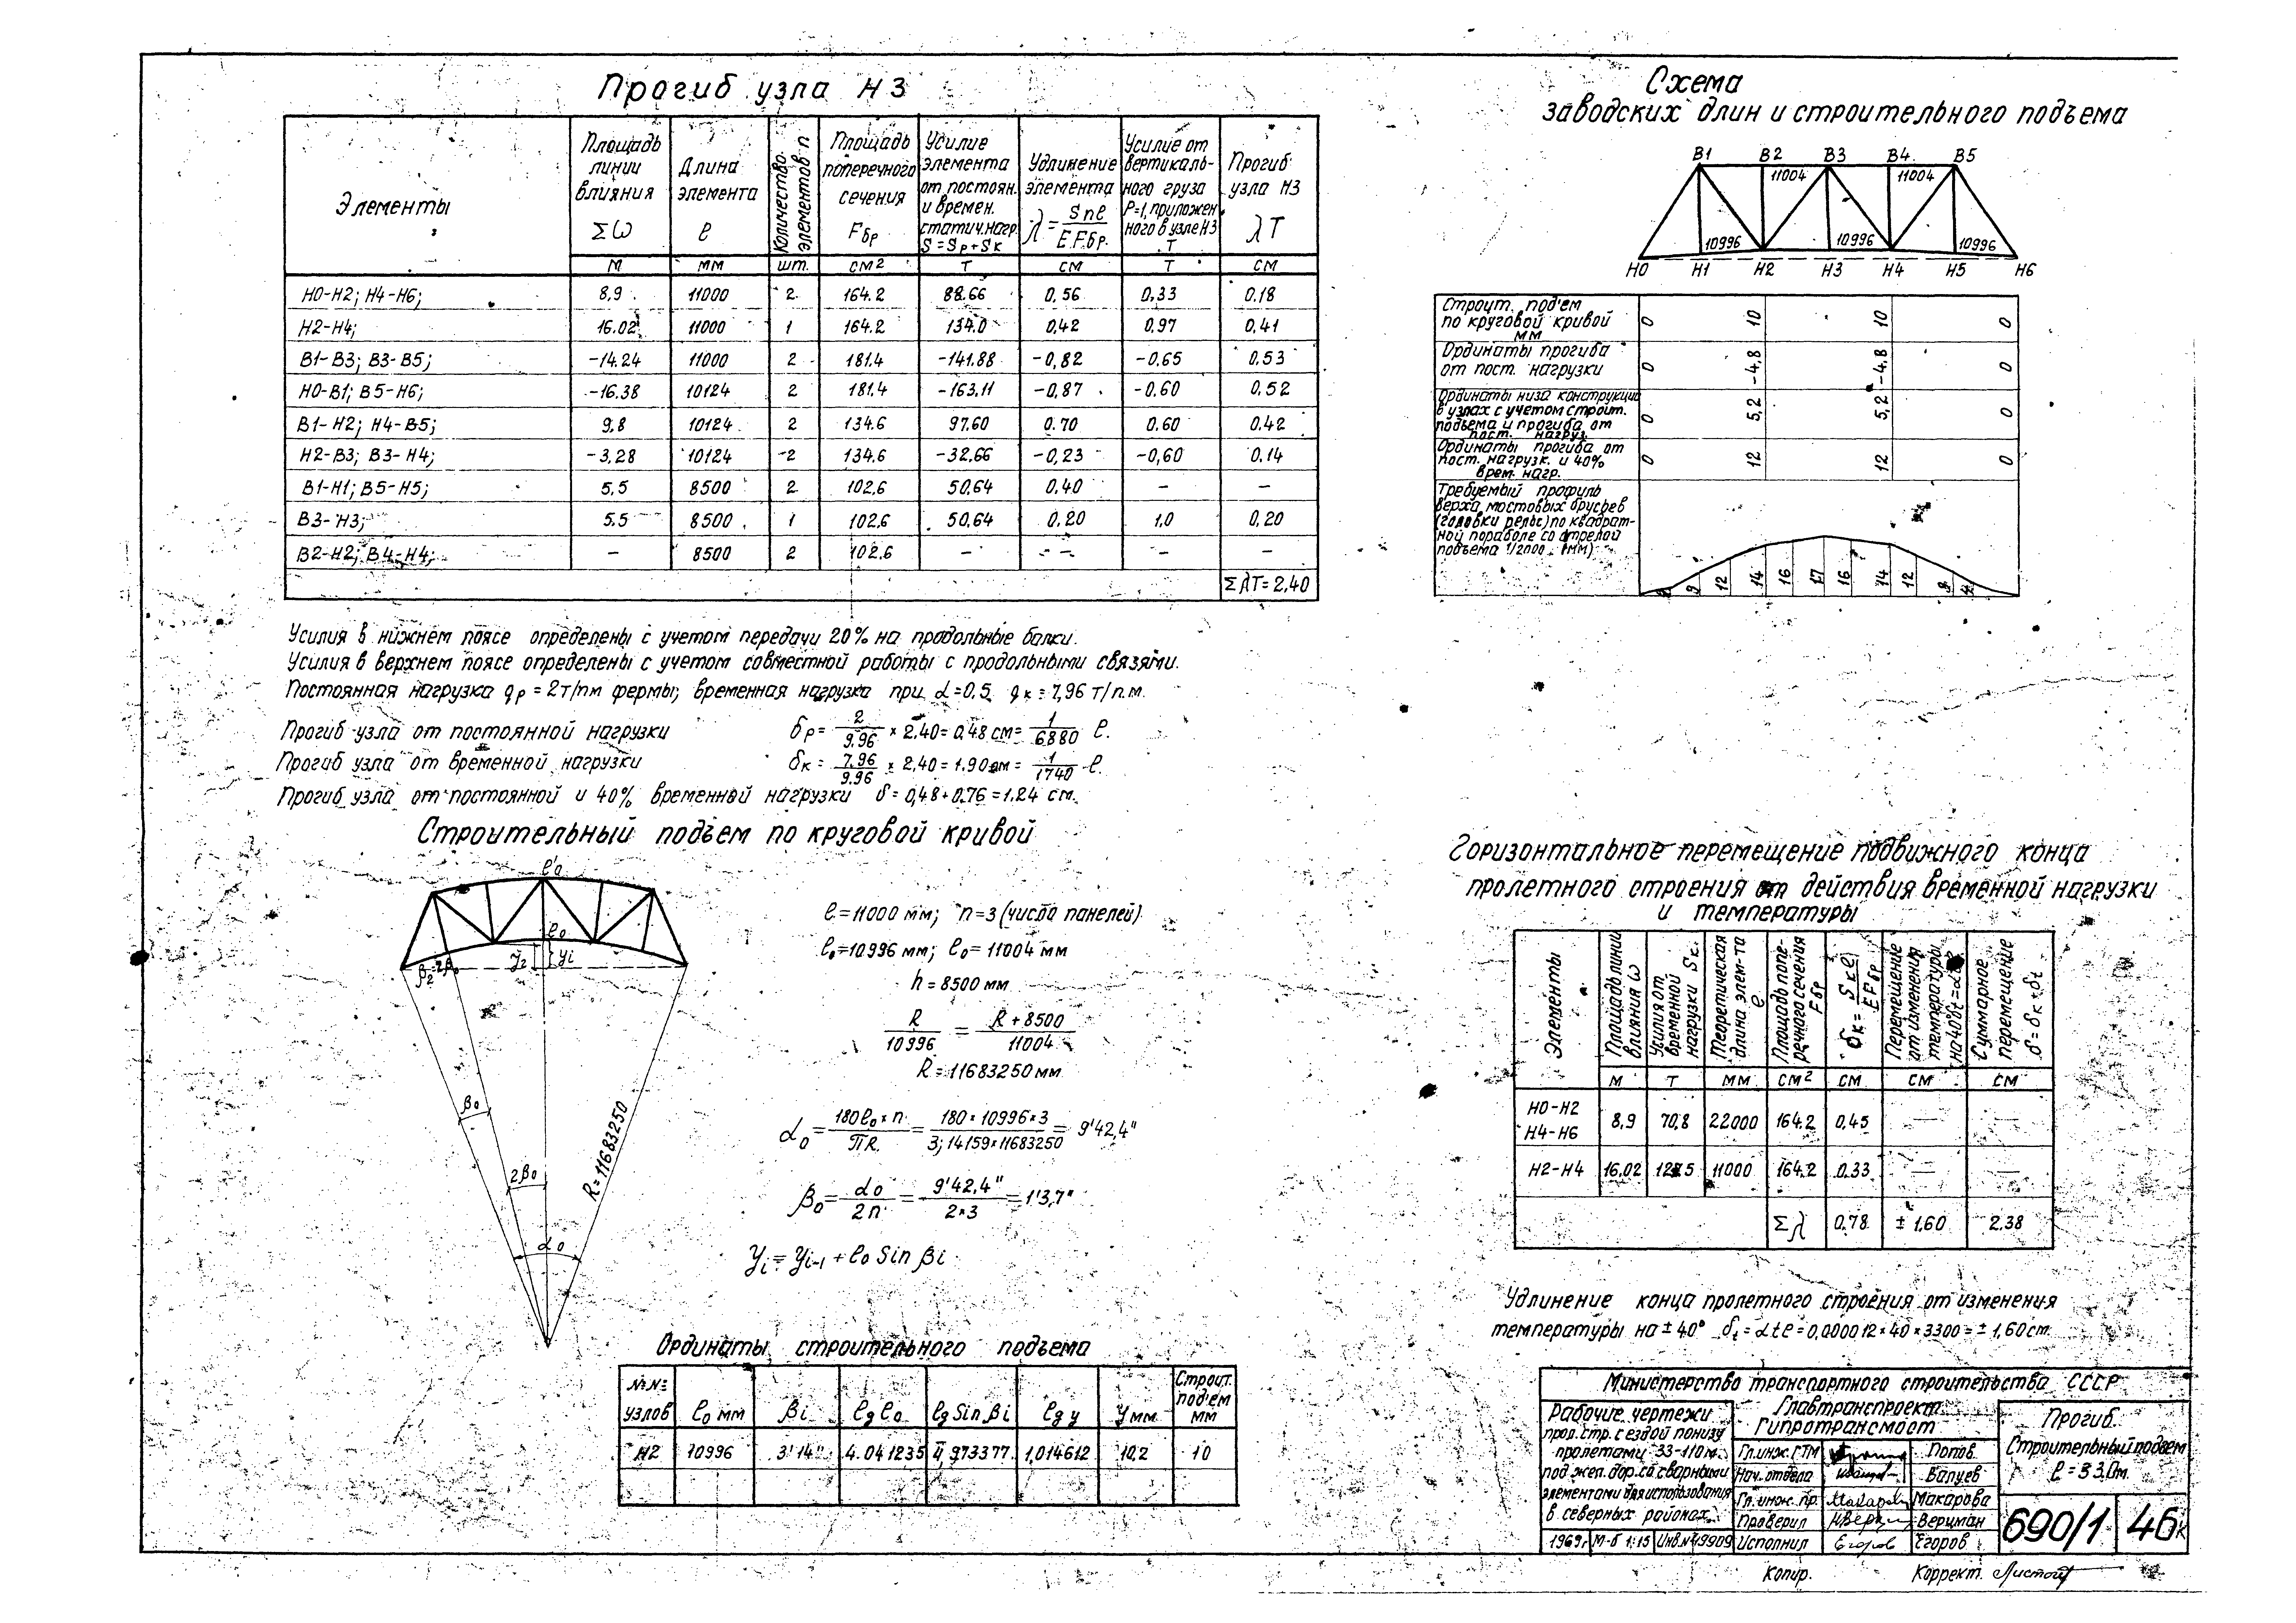 Прогиб узла Н3
Элементы
Площадь линии влияния Σω
Длина элемента ℓ
Количество элементов n
Площадь поперечного сечения Fбр
Усилие элемента от постоян. и времен. статич. нагр. S=Sр+Sк
Удлинение элемента λ=Snℓ/EFбр.
Усилие от вертикального груза P=1, приложенного в узле Н3 Т
Прогиб узла Н3 λТ
м мм шт. см² т см т см
Н0-Н2; Н4-Н6; 8,9 11000 2 164.2 88.66 0,56 0,33 0.18
Н2-Н4; 16.02 11000 1 164.2 134.0 0,42 0,97 0,41
В1-В3; В3-В5; -14.24 11000 2 181.4 -141.88 -0,82 -0.65 0.53
Н0-В1; В5-Н6; -16.38 10124 2 181.4 -163.11 -0,87 -0.60 0.52
В1-Н2; Н4-В5; 9,8 10124 2 134.6 97.60 0.70 0.60 0.42
Н2-В3; В3-Н4; -3.28 10124 2 134.6 -32.66 -0,23 -0,60 0.14
В1-Н1; В5-Н5; 5.5 8500 2 102.6 50,64 0,40 – –
В3-Н3; 5.5 8500 1 102.6 50,64 0,20 1,0 0,20
В2-Н2; В4-Н4; – 8500 2 102.6 – – – –
ΣλТ=2,40
Усилия в нижнем поясе определены с учетом передачи 20% на продольные балки.
Усилия в верхнем поясе определены с учетом совместной работы с продольными связями.
Постоянная нагрузка qр = 2т/пм фермы; временная нагрузка при α=0.5 qк=7,96 т/п.м.
Прогиб узла от постоянной нагрузки δр = 2/9.96 × 2.40 = 0,48 см = 1/6880 ℓ.
Прогиб узла от временной нагрузки δк = 7.96/9.96 × 2,40 = 1.90 см = 1/1740 ℓ.
Прогиб узла от постоянной и 40% временной нагрузки δ = 0,48+0.76 = 1.24 см.
Строительный подъем по круговой кривой
ℓ'0
ℓ0
β2=2β0 y2 yi
β0
2β0
R=11683250
α0
ℓ=11000 мм; n=3 (число панелей)
ℓ0=10996 мм; ℓ0=11004 мм
h=8500 мм
R/10996 = R+8500/11004
R=11683250 мм
α0 = 180ℓ0×n/πR = 180×10996×3/3,14159×11683250 = 9'42,4"
β0 = α0/2n = 9'42,4"/2×3 = 1'3,7"
yi = yi-1 + ℓ0 Sin βi
Ординаты строительного подъема
№№ узлов ℓ0 мм βi ℓg ℓ0 ℓg Sin βi ℓg y y мм Строит. подъем мм
Н2 10996 3'14" 4.041235 4,973377 1,014612 10,2 10
Схема
заводских длин и строительного подъема
В1 В2 В3 В4 В5
11004 11004
10996 10996 10996
Н0 Н1 Н2 Н3 Н4 Н5 Н6
Строит. подъем по круговой кривой мм 0 10 10 0
Ординаты прогиба от пост. нагрузки 0 -4,8 -4,8 0
Ординаты низа конструкции в узлах с учетом строит. подъема и прогиба от пост. нагруз. 0 5,2 5,2 0
Ординаты прогиба от пост. нагрузк. и 40% врем. нагр. 0 12 12 0
Требуемый профиль верха мостовых брусьев (головки рельс) по квадратной параболе со стрелой подъема 1/2000 (мм)
9 12 14 16 17 16 14 12
Горизонтальное перемещение подвижного конца
пролетного строения от действия временной нагрузки
и температуры
Элементы
Площадь линии влияния ω
Усилия от временной нагрузки Sк.
Теоретическая длина элем-та ℓ
Площадь поперечного сечения Fбр
δк=Sкℓ/EFбр
Перемещение от изменения температуры на 40°
Суммарное перемещение δ=δк+δt
м т мм см² см см см
Н0-Н2 Н4-Н6 8,9 70,8 22000 164.2 0,45 – –
Н2-Н4 16,02 11000 164.2 0.33 – –
Σλ 0,78 ±1,60 2.38
Удлинение конца пролетного строения от изменения
температуры на ±40° δt=αtℓ=0,000012×40×3300=±1,60 см.
Министерство транспортного строительства СССР
Главтранспроект
Гипротрансмост
Рабочие чертежи
прол. стр. с ездой понизу
пролетами 33-110 м
под жел. дор. со сварными
элементами для использования
в северных районах.
1969г. М-б 1:15 Инв.№
Гл. инж. ГТМ Попов
Нач. отдела
Гл. инж. пр. Макарова
Проверил Верцман
Исполнил Егоров
Прогиб.
Строительный подъем
ℓ=33.0м.
690/1 46к
Копир. Коррект.